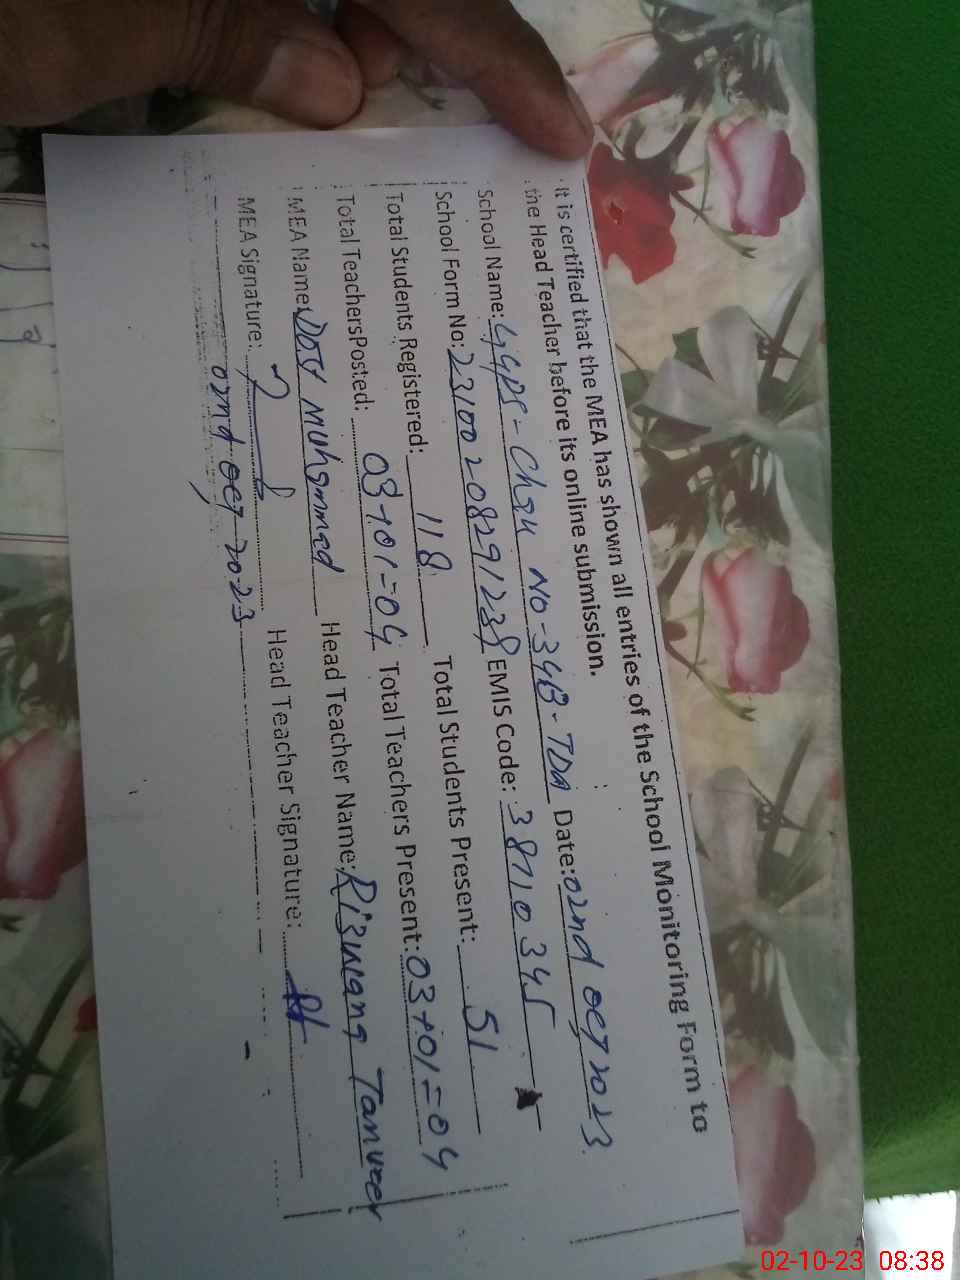 It is certified that the MEA has shown all entries of the School Monitoring Form to
the Head Teacher before its online submission.
School Name: GGPS - Chak No-34B-TDA Date: 02nd oct 2023
School Form No: 23100208291238 EMIS Code: 38710345
Total Students Registered: 118 Total Students Present: 51
Total TeachersPosted: 03+01=04 Total Teachers Present: 03+01=04
MEA Name: Dost Muhammad Head Teacher Name: Rizwana Tanveer
MEA Signature: Head Teacher Signature:
02nd oct 2023
02-10-23 08:38